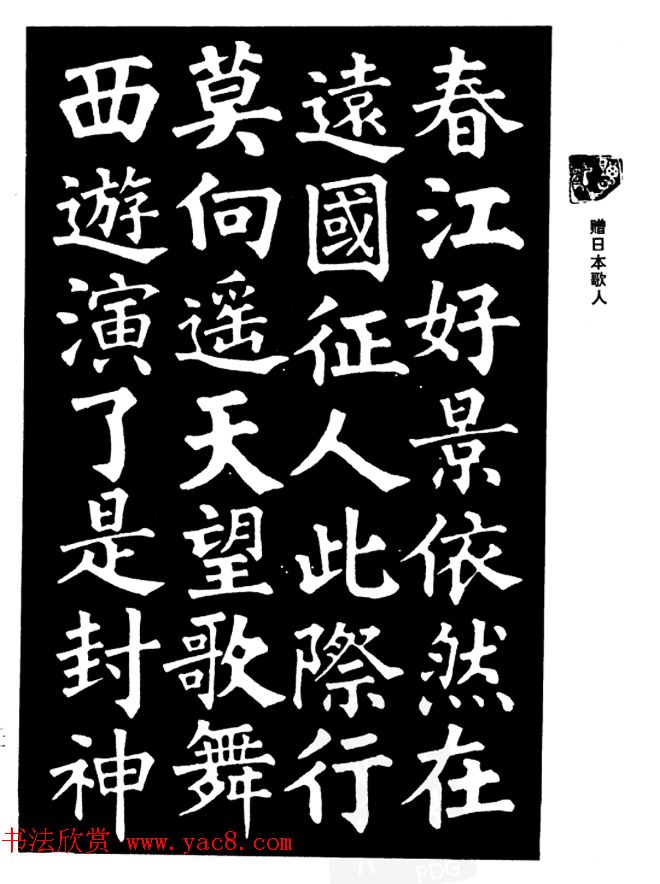 春江好景依然在
遠國征人此際行
莫向遥天望歌舞
西遊演了是封神
赠日本歌人
书法欣赏 www.yac8.com
PDG